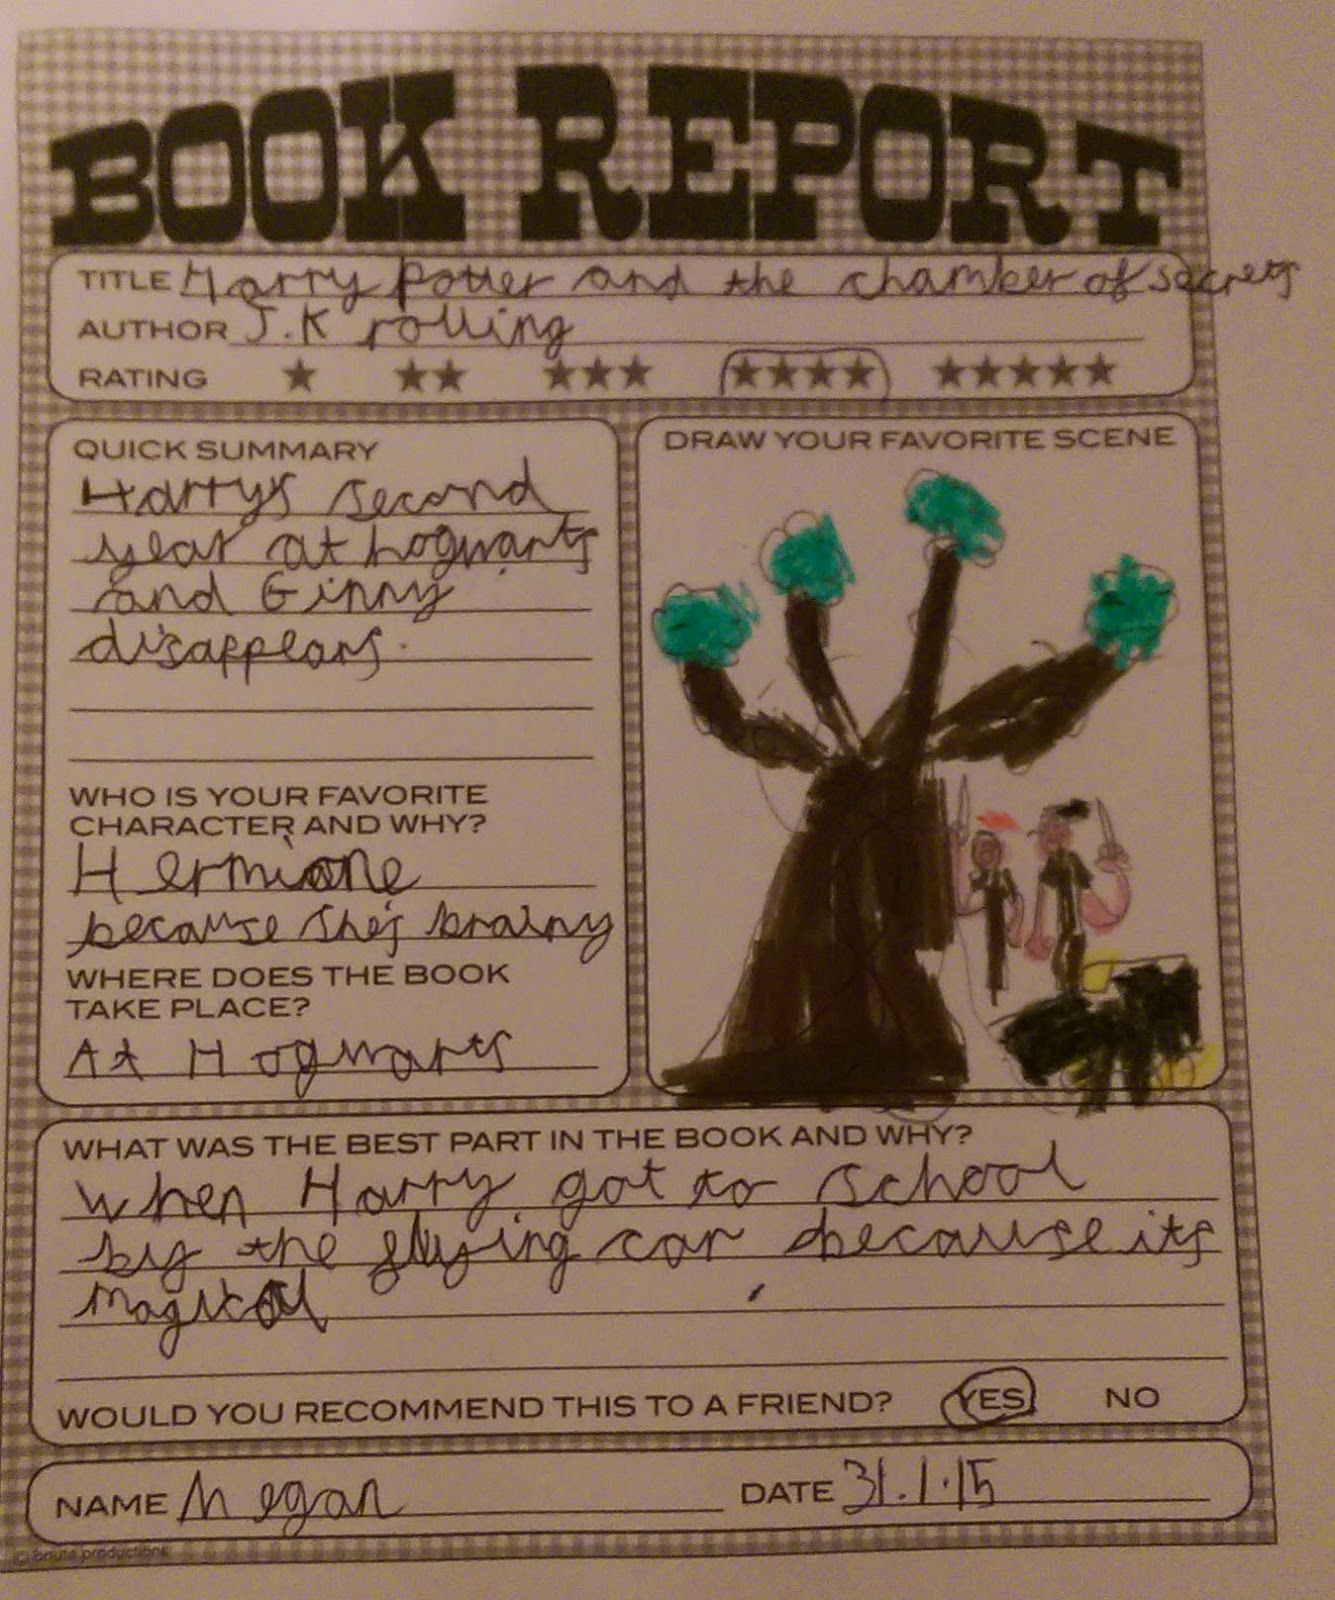 BOOK REPORT
TITLE Harry Potter and the chamber of secrets
AUTHOR J.K rolling
RATING ★ ★★ ★★★ ★★★★ ★★★★★
QUICK SUMMARY
Harrys second
year at hogwarts
and Ginny
disappears.
WHO IS YOUR FAVORITE
CHARACTER AND WHY?
Hermione
because she's brainy
WHERE DOES THE BOOK
TAKE PLACE?
At Hogwarts
DRAW YOUR FAVORITE SCENE
WHAT WAS THE BEST PART IN THE BOOK AND WHY?
When Harry got to school
by the flying car because its
magical
WOULD YOU RECOMMEND THIS TO A FRIEND? YES NO
NAME Megan DATE 31.1.15
productions